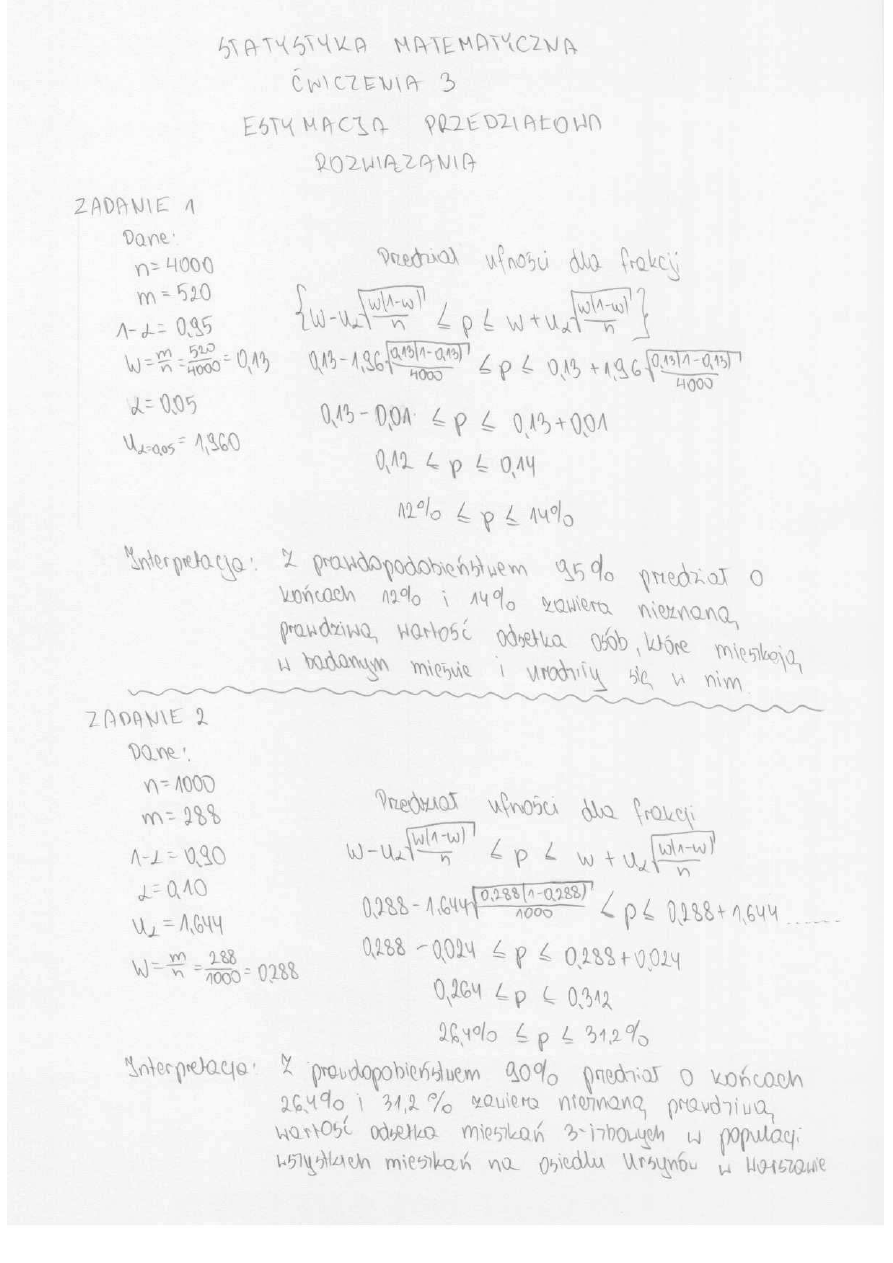 STATYSTYKA MATEMATYCZNA
ĆWICZENIA 3
ESTYMACJA PRZEDZIAŁOWA
ROZWIĄZANIA
ZADANIE 1
Dane:
n=4000
m=520
1-α=0,95
W=m/n=520/4000=0,13
α=0,05
uα=0,05=1,960
Przedział ufności dla frakcji
{W-uα√(w(1-w)/n) ≤ p ≤ w+uα√(w(1-w)/n)}
0,13-1,96√(0,13(1-0,13)/4000) ≤ p ≤ 0,13+1,96√(0,13(1-0,13)/4000)
0,13-0,01 ≤ p ≤ 0,13+0,01
0,12 ≤ p ≤ 0,14
12% ≤ p ≤ 14%
Interpretacja: Z prawdopodobieństwem 95% przedział o
końcach 12% i 14% zawiera nieznaną,
prawdziwą wartość odsetka osób, które mieszkają
w badanym mieście i urodziły się w nim
ZADANIE 2
Dane:
n=1000
m=288
1-α=0,90
α=0,10
uα=1,644
W=m/n=288/1000=0,288
Przedział ufności dla frakcji
W-uα√(w(1-w)/n) ≤ p ≤ w+uα√(w(1-w)/n)
0,288-1,644√(0,288(1-0,288)/1000) ≤ p ≤ 0,288+1,644.......
0,288-0,024 ≤ p ≤ 0,288+0,024
0,264 ≤ p ≤ 0,312
26,4% ≤ p ≤ 31,2%
Interpretacja: Z prawdopobieństwem 90% przedział o końcach
26,4% i 31,2% zawiera nieznaną, prawdziwą,
wartość odsetka mieszkań 3-izbowych w populacji
wszystkich mieszkań na osiedlu Ursynów w Warszawie